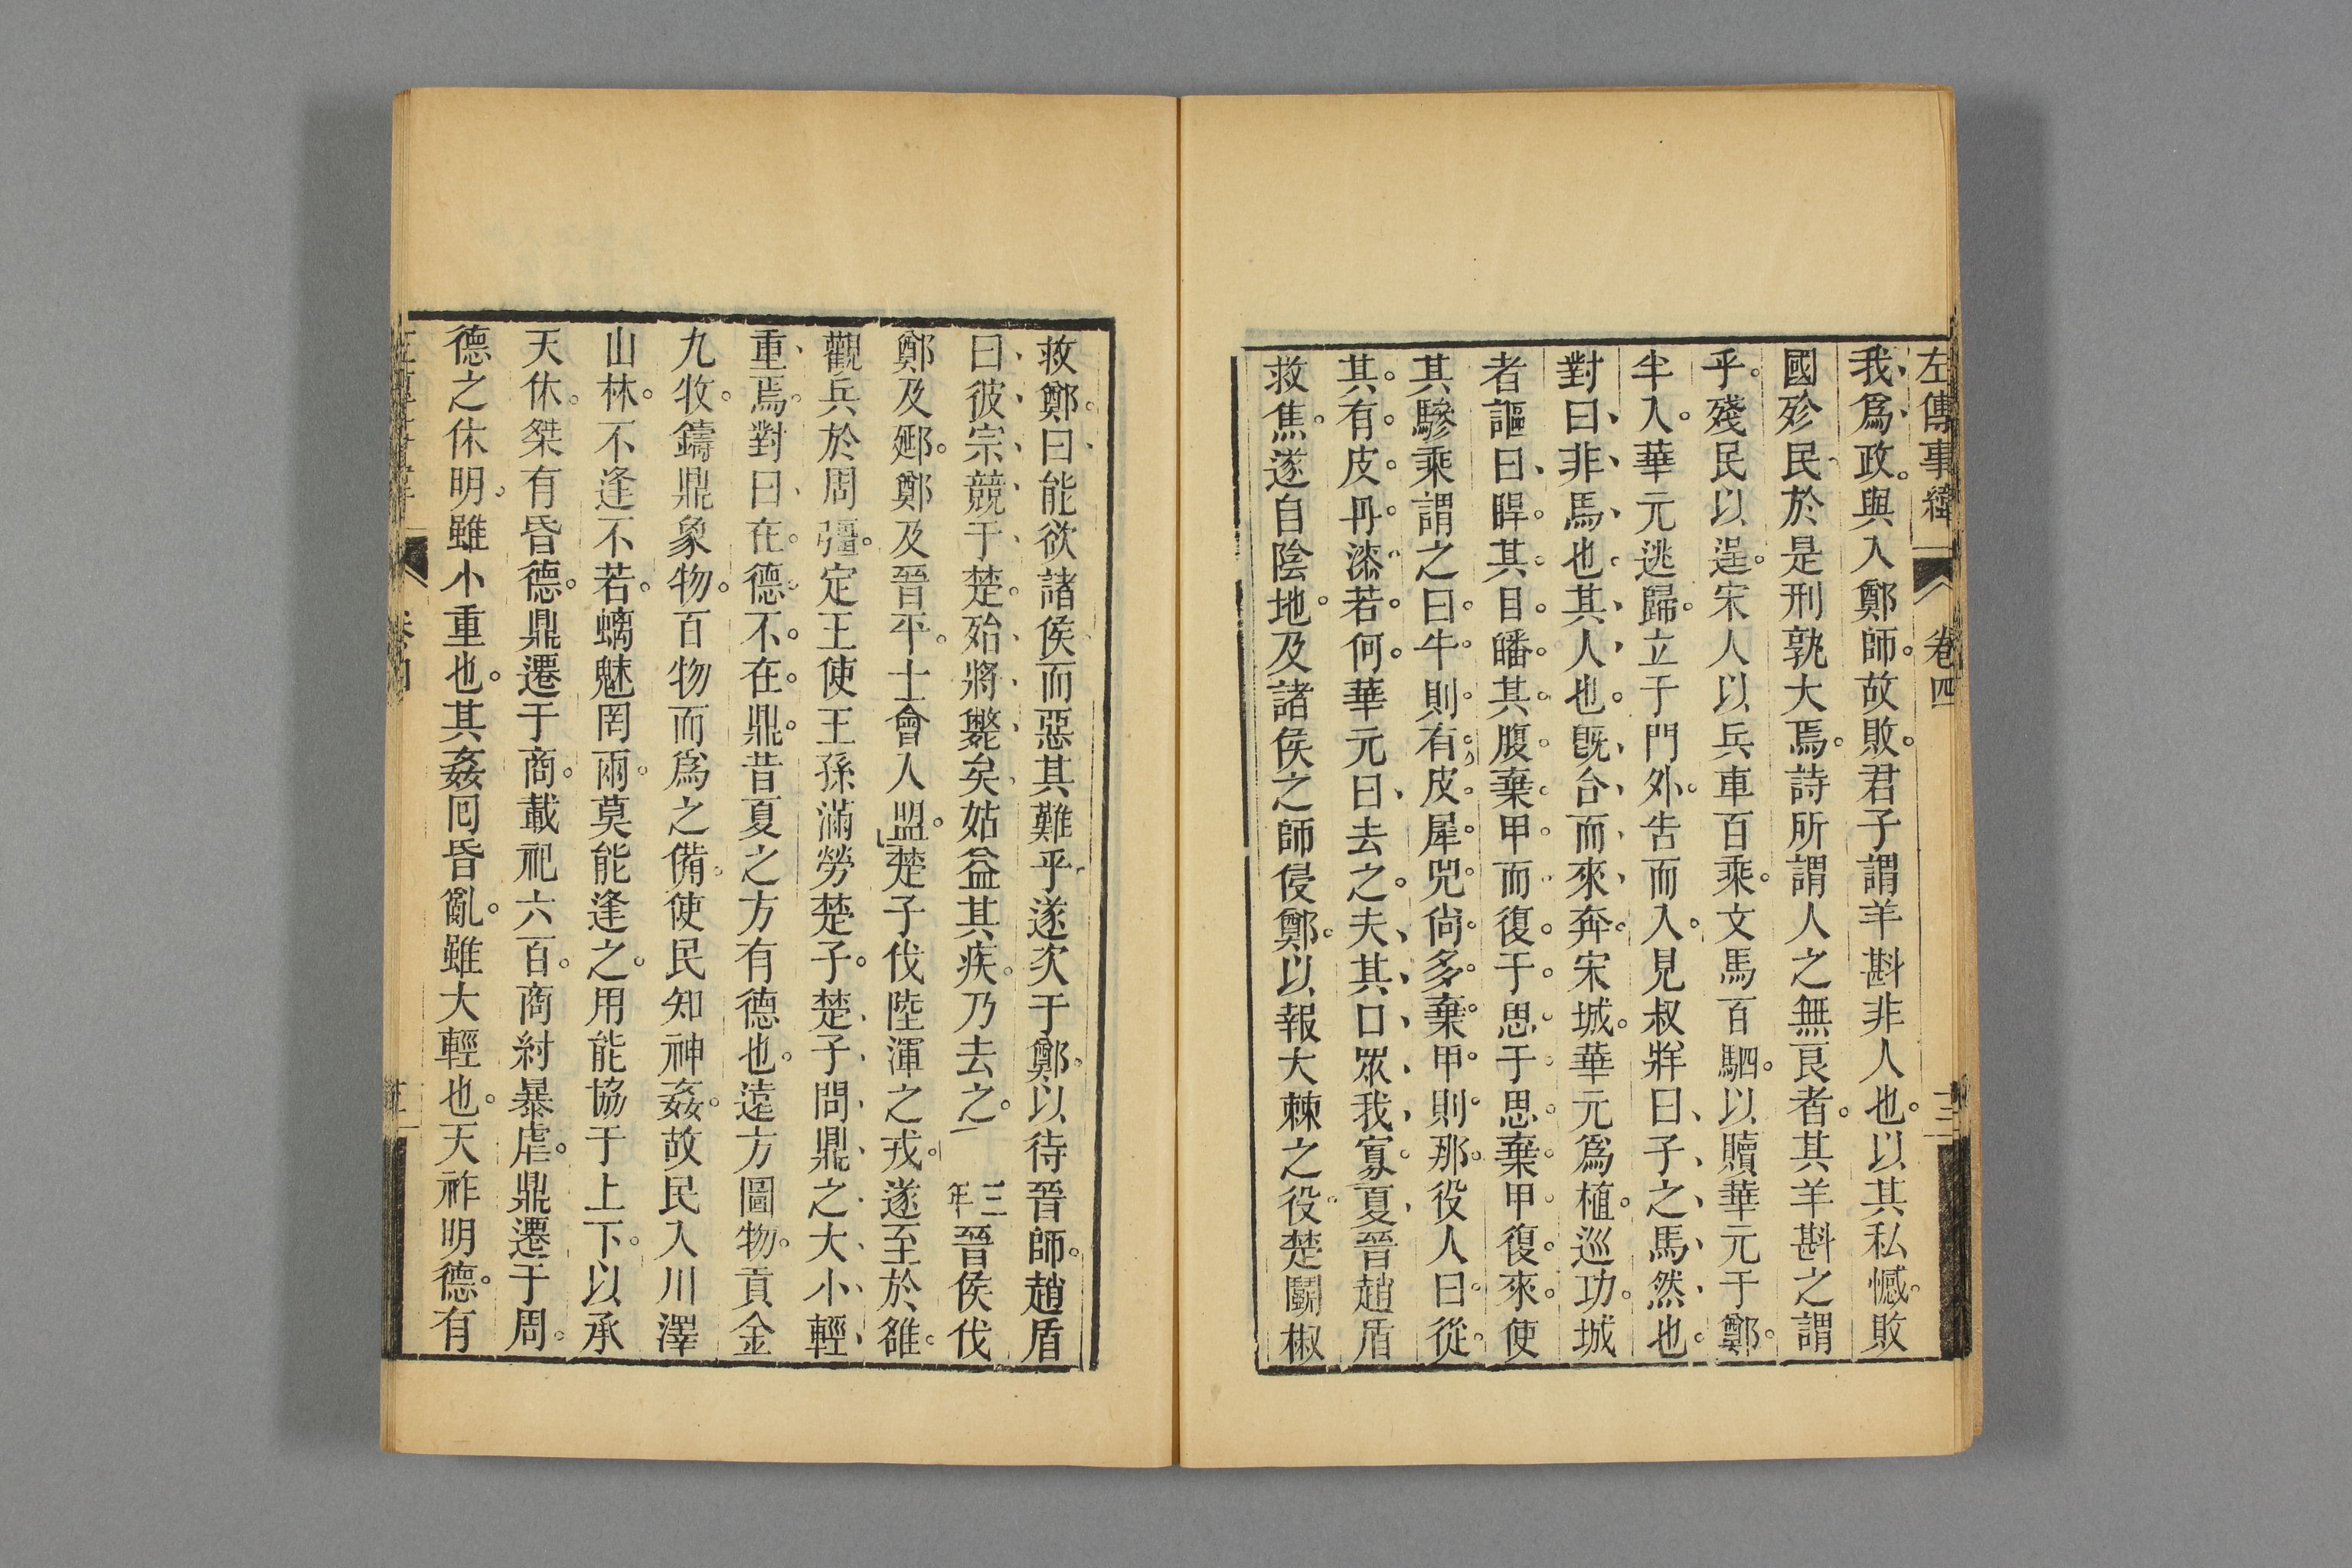 左傳事緯 卷四 三
我爲政與入鄭師故敗君子謂羊斟非人也以其私憾敗
國殄民於是刑孰大焉詩所謂人之無良者其羊斟之謂
乎殘民以逞宋人以兵車百乘文馬百駟以贖華元于鄭
半入華元逃歸立于門外告而入見叔牂曰子之馬然也
對曰非馬也其人也旣合而來奔宋城華元爲植巡功城
者謳曰睅其目皤其腹棄甲而復于思于思棄甲復來使
其驂乘謂之曰牛則有皮犀兕尙多棄甲則那役人曰從
其有皮丹漆若何華元曰去之夫其口眾我寡夏晉趙盾
救焦遂自陰地及諸侯之師侵鄭以報大棘之役楚鬭椒
救鄭曰能欲諸侯而惡其難乎遂次于鄭以待晉師趙盾
曰彼宗競于楚殆將斃矣姑益其疾乃去之三年晉侯伐
鄭及郔鄭及晉平士會入盟楚子伐陸渾之戎遂至於雒
觀兵於周疆定王使王孫滿勞楚子楚子問鼎之大小輕
重焉對曰在德不在鼎昔夏之方有德也遠方圖物貢金
九牧鑄鼎象物百物而爲之備使民知神姦故民入川澤
山林不逢不若螭魅罔兩莫能逢之用能協于上下以承
天休桀有昏德鼎遷于商載祀六百商紂暴虐鼎遷于周
德之休明雖小重也其姦回昏亂雖大輕也天祚明德有
卷四